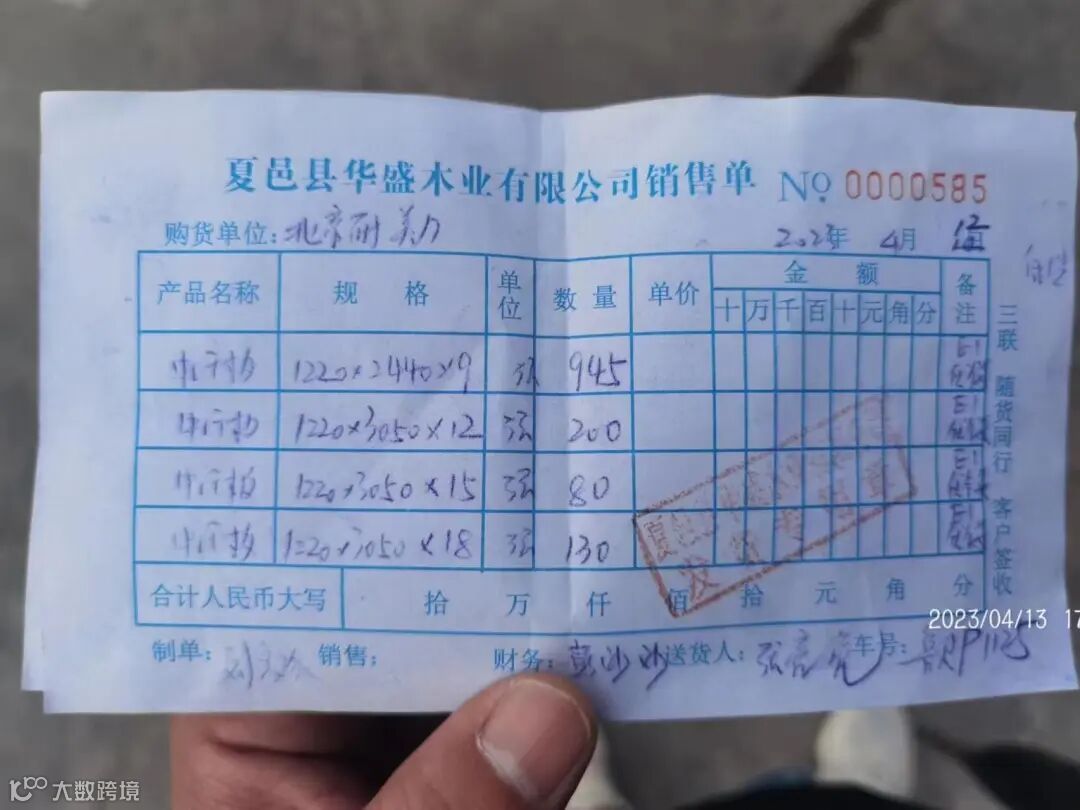 夏邑县华盛木业有限公司销售单 No. 0000585
购货单位: 北京耐美力 2023年 4月 日
产品名称 规格 单位 数量 单价 金额 备注
十 万 千 百 十 元 角 分
1220×2440×9 张 945 E1
1220×3050×12 张 200 E1
1220×3050×15 张 80 E1
1220×3050×18 张 130 E1
合计人民币大写 拾 万 仟 佰 拾 元 角 分
制单: 销售: 财务: 彭沙沙 送货人: 张亮亮 车号: 鲁P
三联 随货同行 客户签收
2023/04/13 17
大数跨境